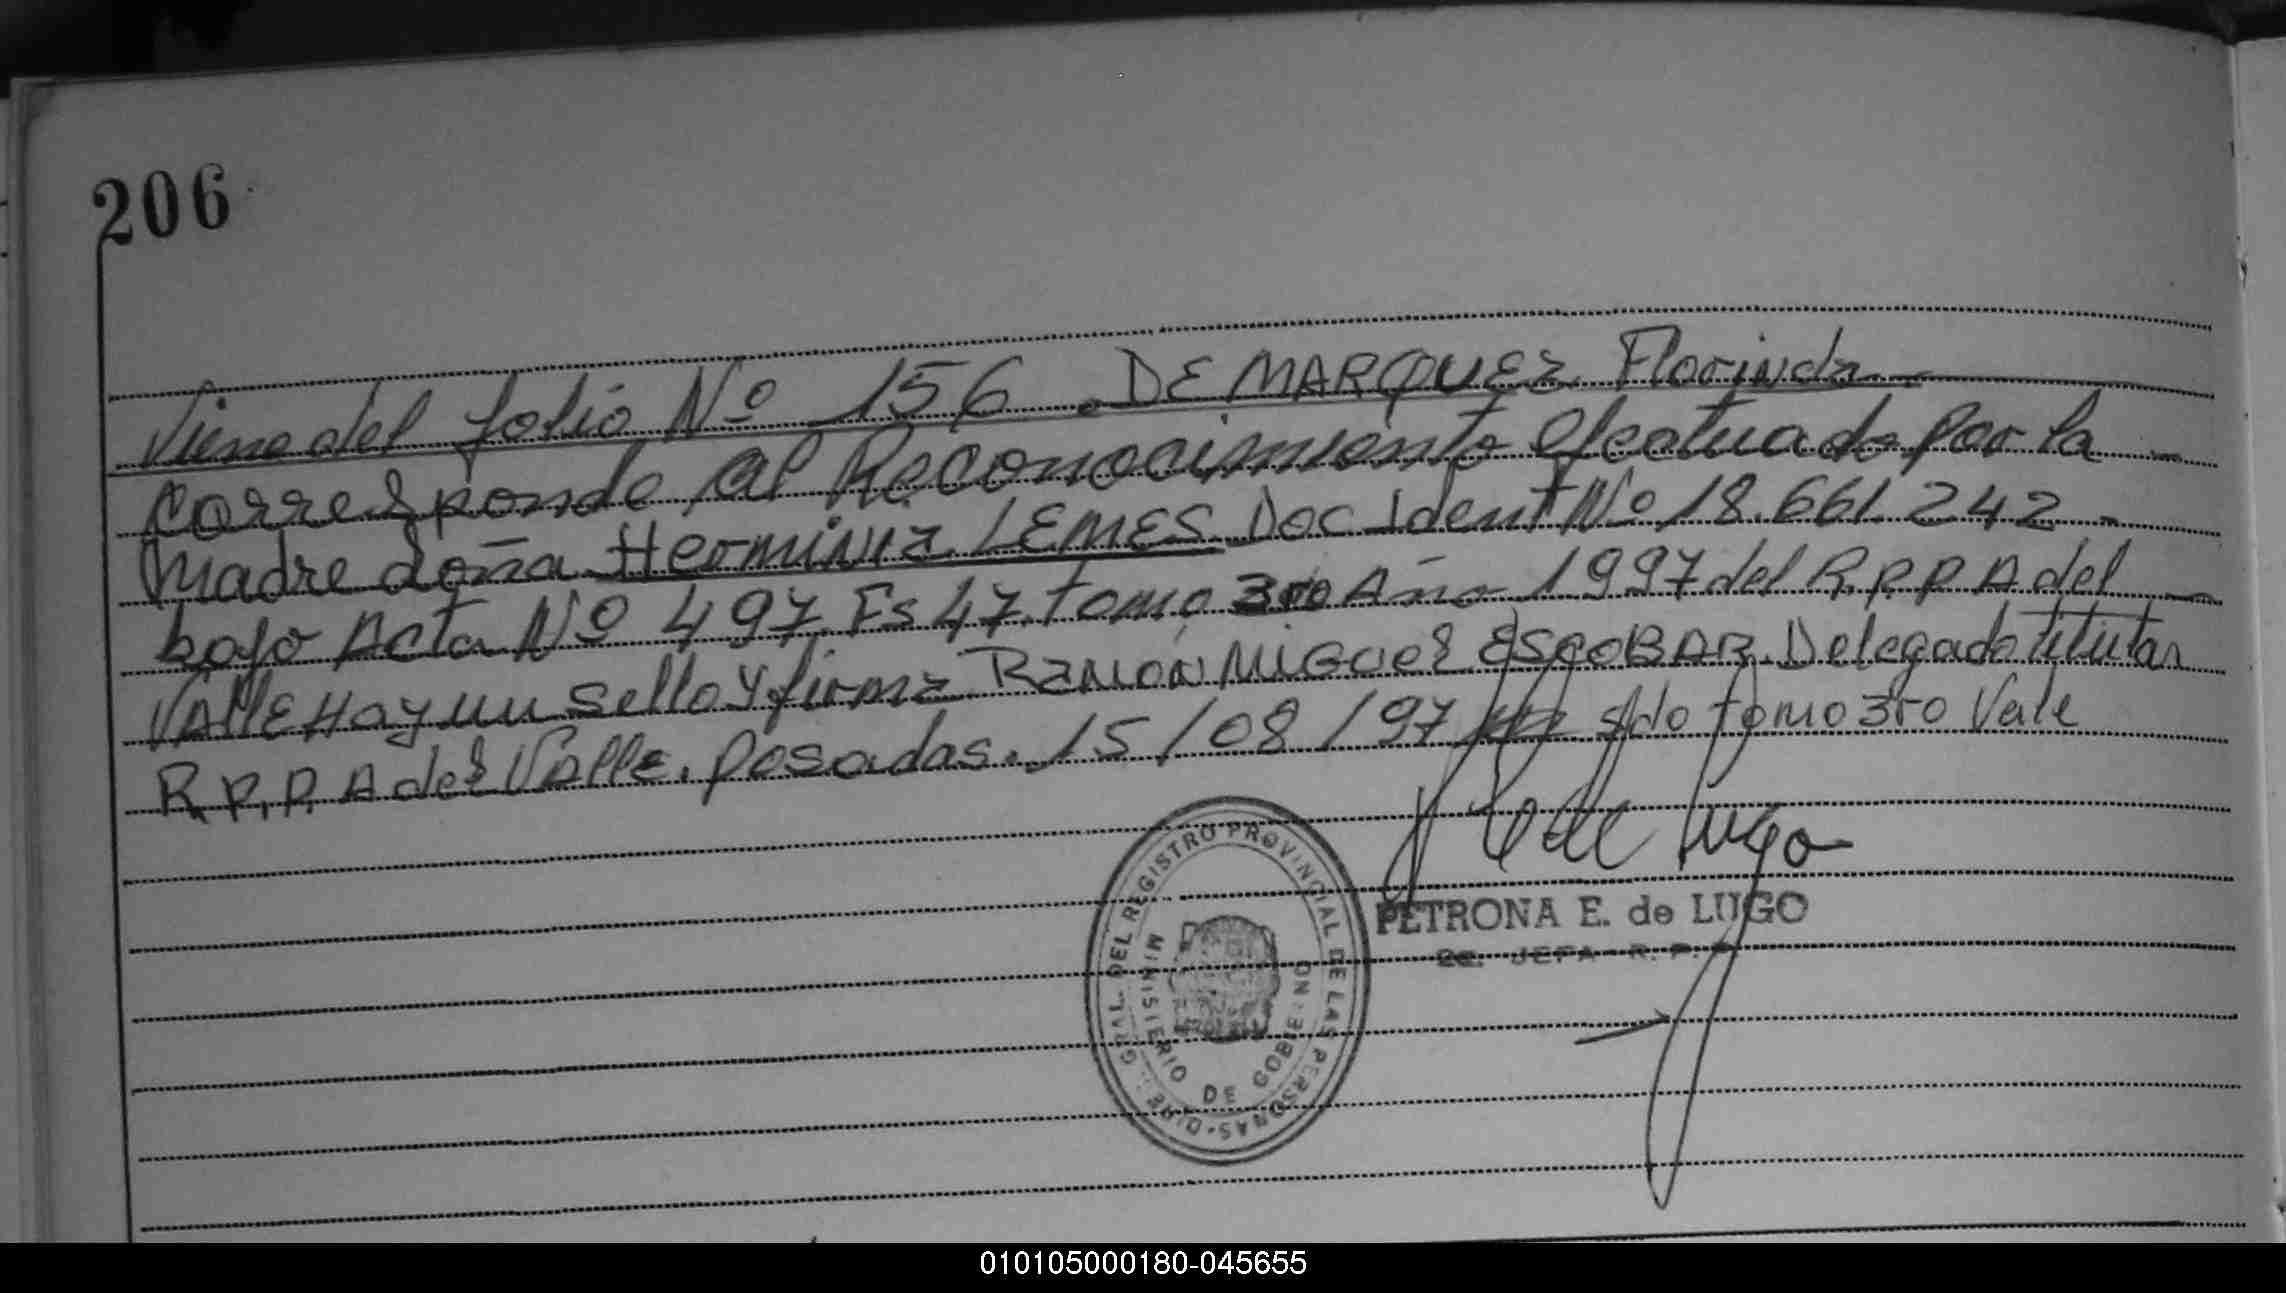 206
Viene del folio Nº 156. DE MARQUEZ Florinda.-
Corresponde al Reconocimiento efectuado por la -
Madre doña Herminia LEMES Doc Ident Nº 18.661.242 -
bajo Acta Nº 497. Fs 47. tomo 3ro Año 1997 del R.P.P. A del -
VAllE Hay un sello y firma RAMÓN MIGUEL ESCOBAR. Delegado Titular
R.P.P. A del VAlle. Posadas. 15/08/97 Sdo tomo 3ro Vale
PETRONA E. de LUGO
JEFA R. P. P.
DEL REGISTRO PROVINCIAL DE LAS PERSONAS
MINISTERIO DE GOBIERNO
010105000180-045655